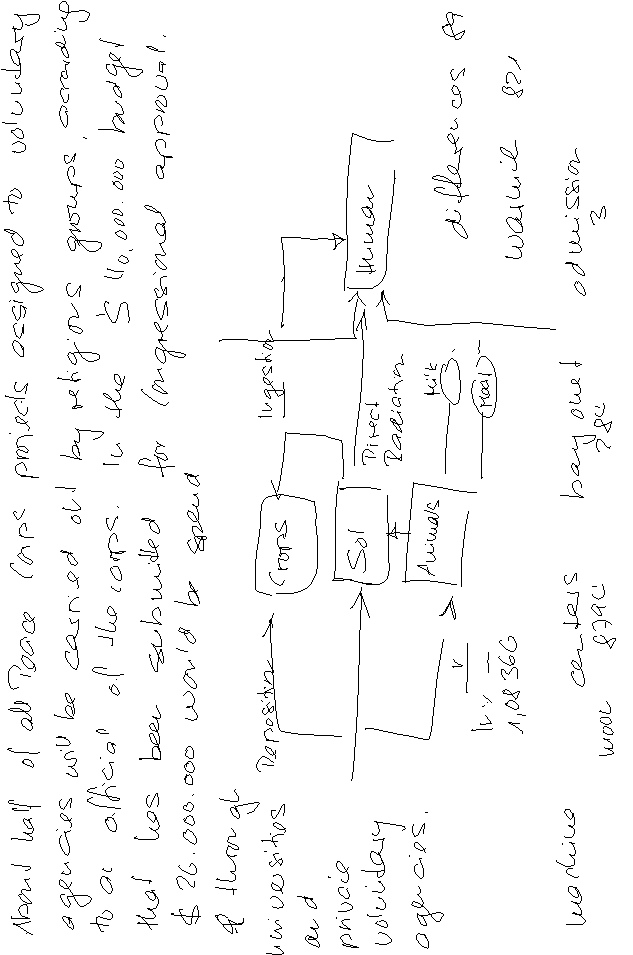 About half of all Peace Corps projects assigned to voluntary
agencies will be carried out by religious groups, according
to an official of the corps. In the $ 110,000.000 budget
that has been submitted for Congressional approval.
$ 26.000.000 would be spend
through
universities
and
private
voluntary
agencies.
Deposition
Crops
Ingestion
Sol
Direct
Radiation
Human
Animals
Milk
Meat
1,08 366
differences 89
centers
bayonet
admission
3